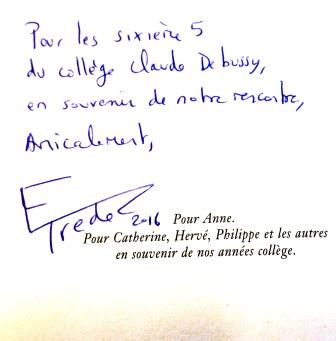 Pour les sixième 5
du collège Claude Debussy,
en souvenir de notre rencontre,
Amicalement,
E Tredez 2016
Pour Anne.
Pour Catherine, Hervé, Philippe et les autres
en souvenir de nos années collège.